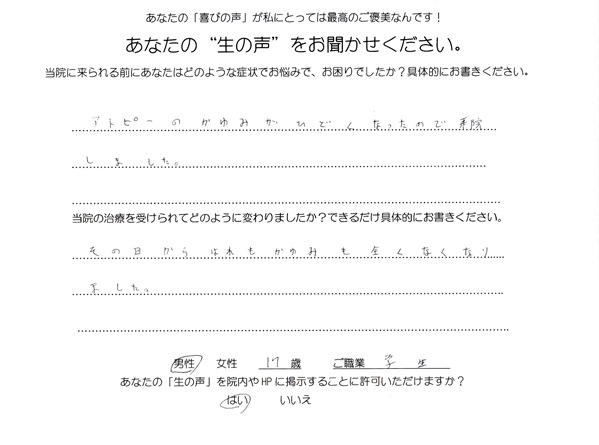 あなたの「喜びの声」が私にとっては最高のご褒美なんです！
あなたの “生の声” をお聞かせください。
当院に来られる前にあなたはどのような症状でお悩みで、お困りでしたか？具体的にお書きください。
アトピーのかゆみがひどくなったので来院
しました。
当院の治療を受けられてどのように変わりましたか？できるだけ具体的にお書きください。
その日からはれもかゆみも全くなくなり
ました。
男性 女性 17 歳 ご職業 学生
あなたの「生の声」を院内や HP に掲示することに許可いただけますか？
はい いいえ